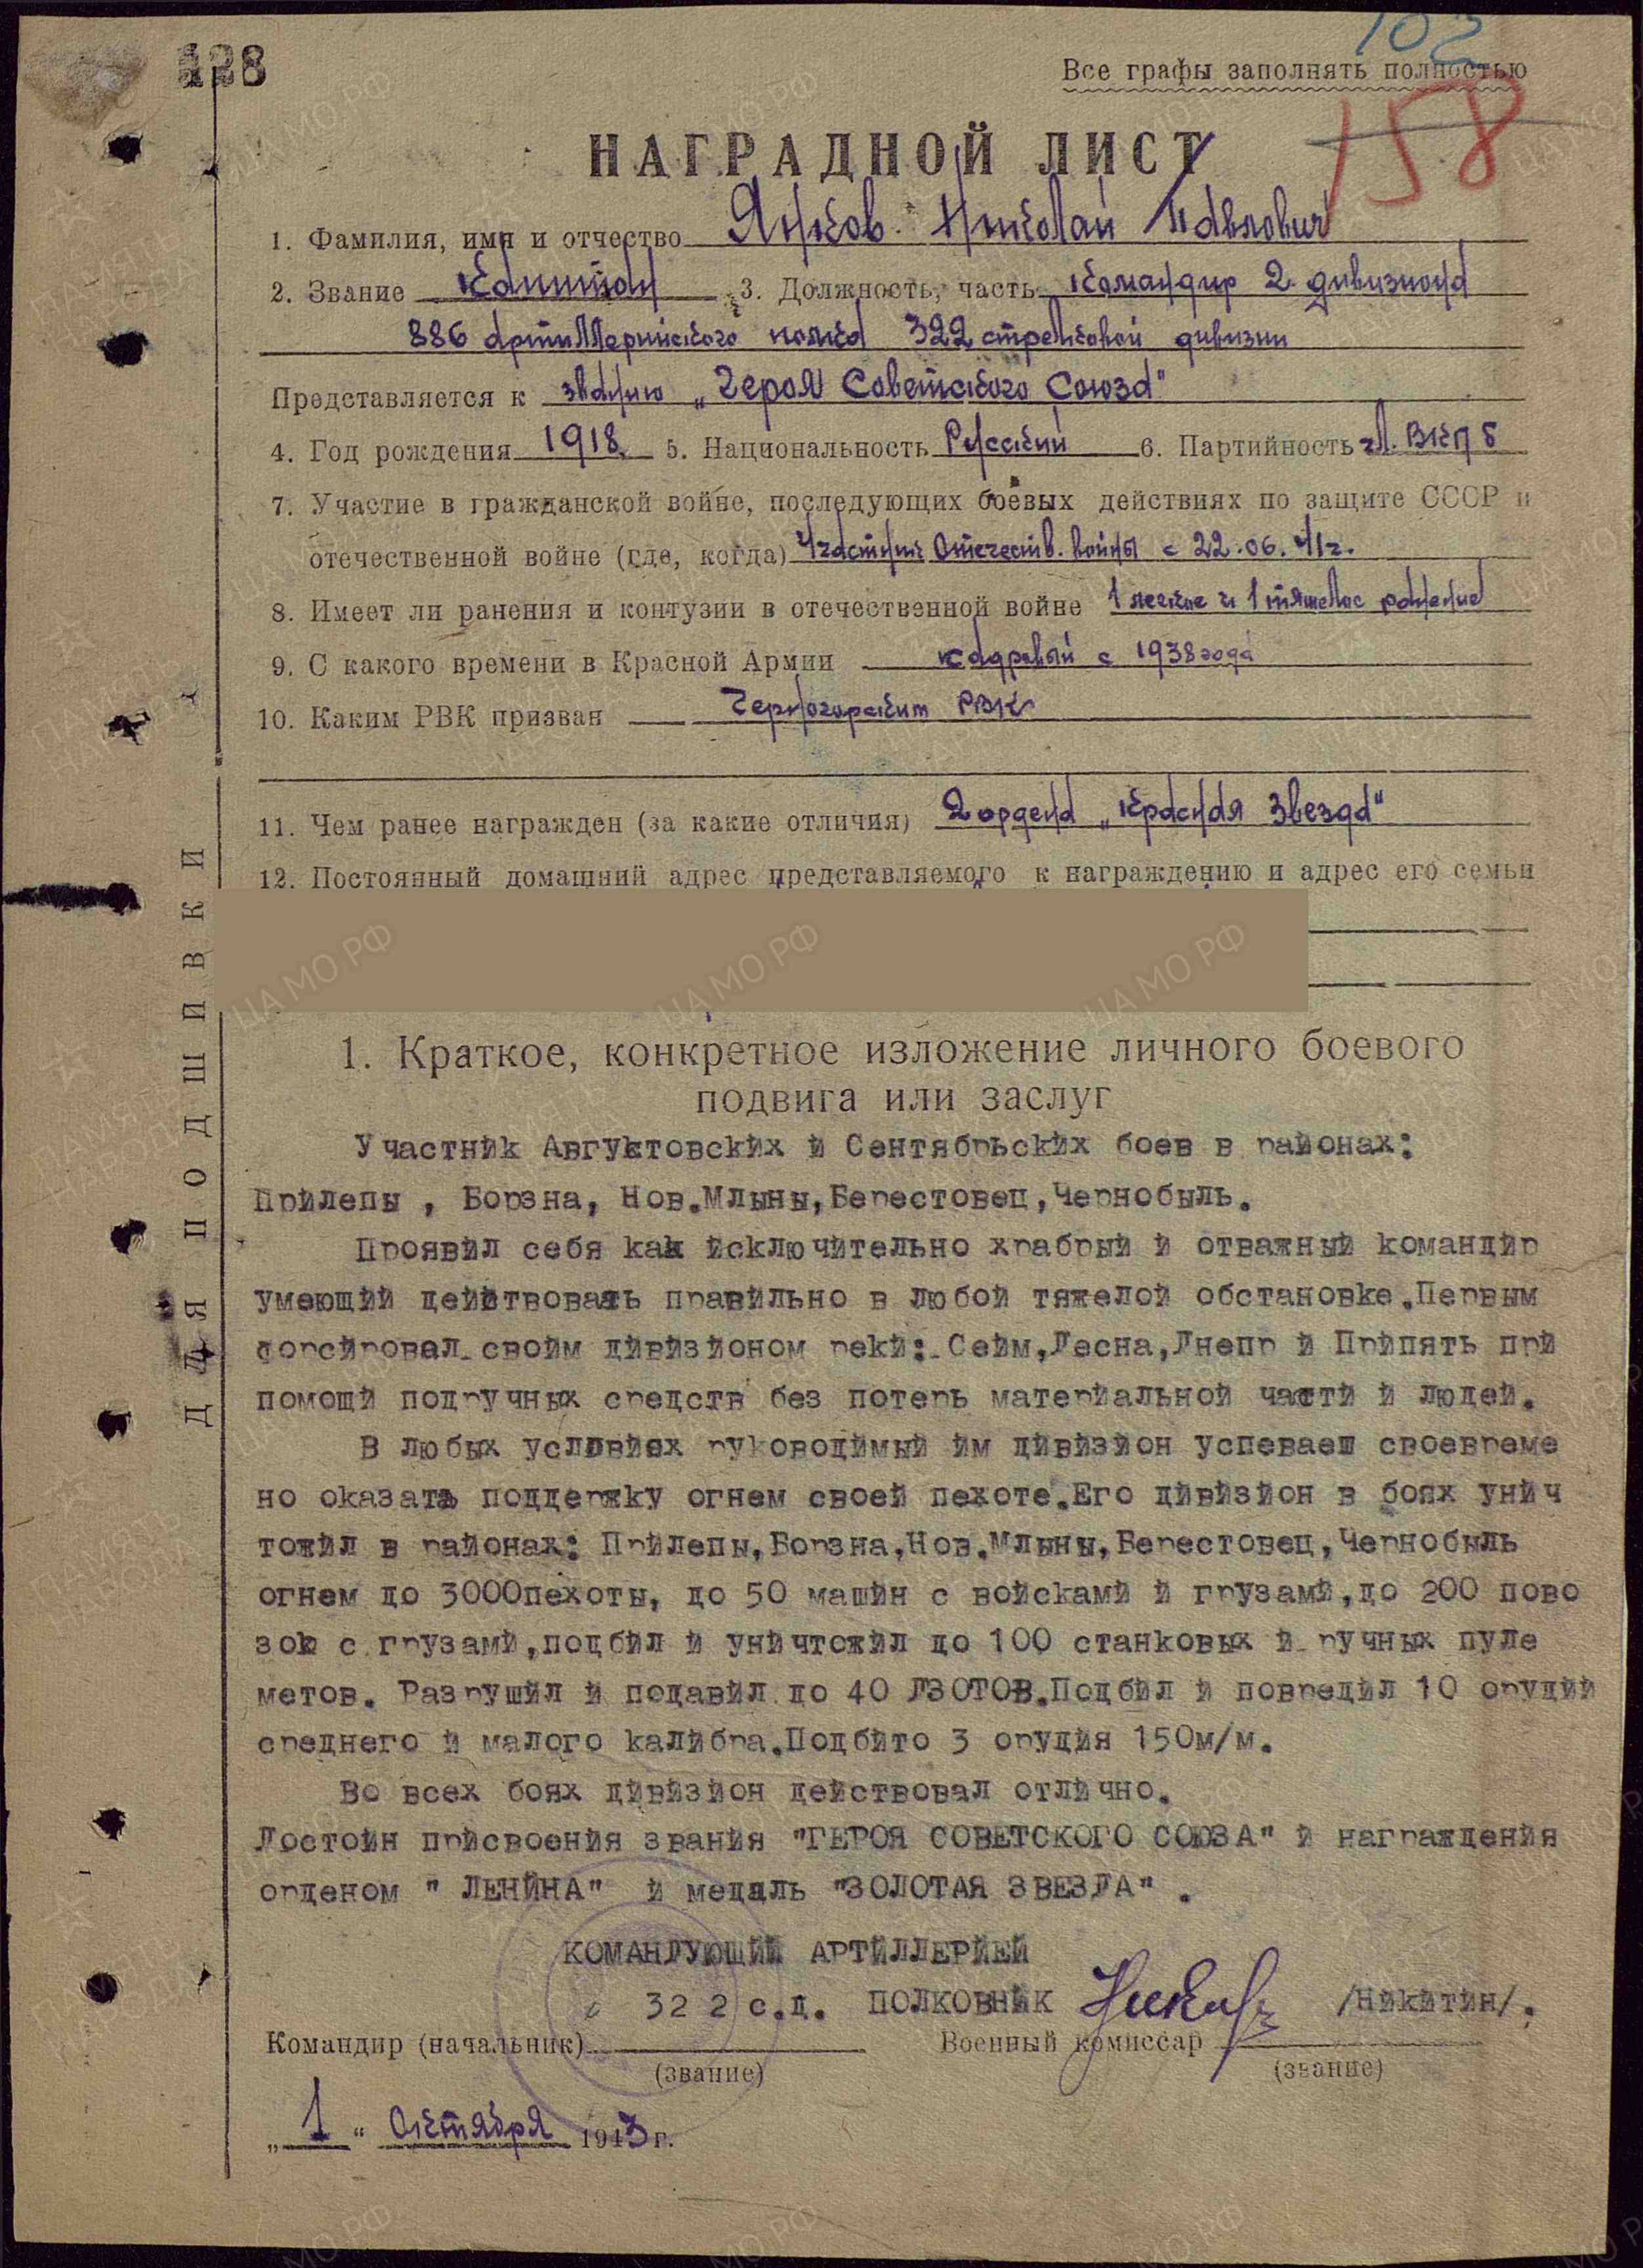 128
102
Все графы заполнять полностью
158
НАГРАДНОЙ ЛИСТ
1. Фамилия, имя и отчество Янков Николай Павлович
2. Звание Капитан 3. Должность, часть Командир 2 дивизиона
886 артиллерийского полка 322 стрелковой дивизии
Представляется к званию „Героя Советского Союза"
4. Год рождения 1918 5. Национальность Русский 6. Партийность чл. ВКПб
7. Участие в гражданской войне, последующих боевых действиях по защите СССР и
отечественной войне (где, когда) Участник Отечеств. войны с 22.06.41г.
8. Имеет ли ранения и контузии в отечественной войне 1 легкое и 1 тяжелое ранение
9. С какого времени в Красной Армии кадровый с 1938 года
10. Каким РВК призван Черногорским РВК
11. Чем ранее награжден (за какие отличия) 2 ордена „Красная Звезда"
12. Постоянный домашний адрес представляемого к награждению и адрес его семьи
ДЛЯ ПОДШИВКИ
1. Краткое, конкретное изложение личного боевого
подвига или заслуг
Участник Авгуктовских и Сентябрьских боев в районах:
Прилепы , Борзна, Нов.Млыны,Берестовец,Чернобыль.
Проявил себя как исключительно храбрый и отважный командир
умеющий действовать правильно в любой тяжелой обстановке.Первым
форсировал своим дивизионом реки: Сейм,Десна,Днепр и Припять при
помощи подручных средств без потерь материальной части и людей.
В любых условиях руководимый им дивизион успевает своевреме
но оказать поддержку огнем своей пехоте.Его дивизион в боях унич
тожил в районах: Прилепы,Борзна,Нов.Млыны,Берестовец,Чернобыль
огнем до 3000пехоты, до 50 машин с войсками и грузами,до 200 пово
зок с грузами,подбил и уничтожил до 100 станковых и ручных пуле
метов. Разрушил и подавил до 40 ДЗОТОВ.Подбил и повредил 10 орудий
среднего и малого калибра.Подбито 3 орудия 150м/м.
Во всех боях дивизион действовал отлично.
Достоин присвоения звания "ГЕРОЯ СОВЕТСКОГО СОЮЗА" и награждения
орденом " ЛЕНИНА" и медаль "ЗОЛОТАЯ ЗВЕЗДА" .
КОМАНДУЮЩИЙ АРТИЛЛЕРИЕЙ
32 2 с.д. ПОЛКОВНИК /НИКИТИН/.
Командир (начальник) Военный комиссар
(звание) (звание)
„1" Октября 1943 г.
ЦА МО РФ
ПАМЯТЬ НАРОДА